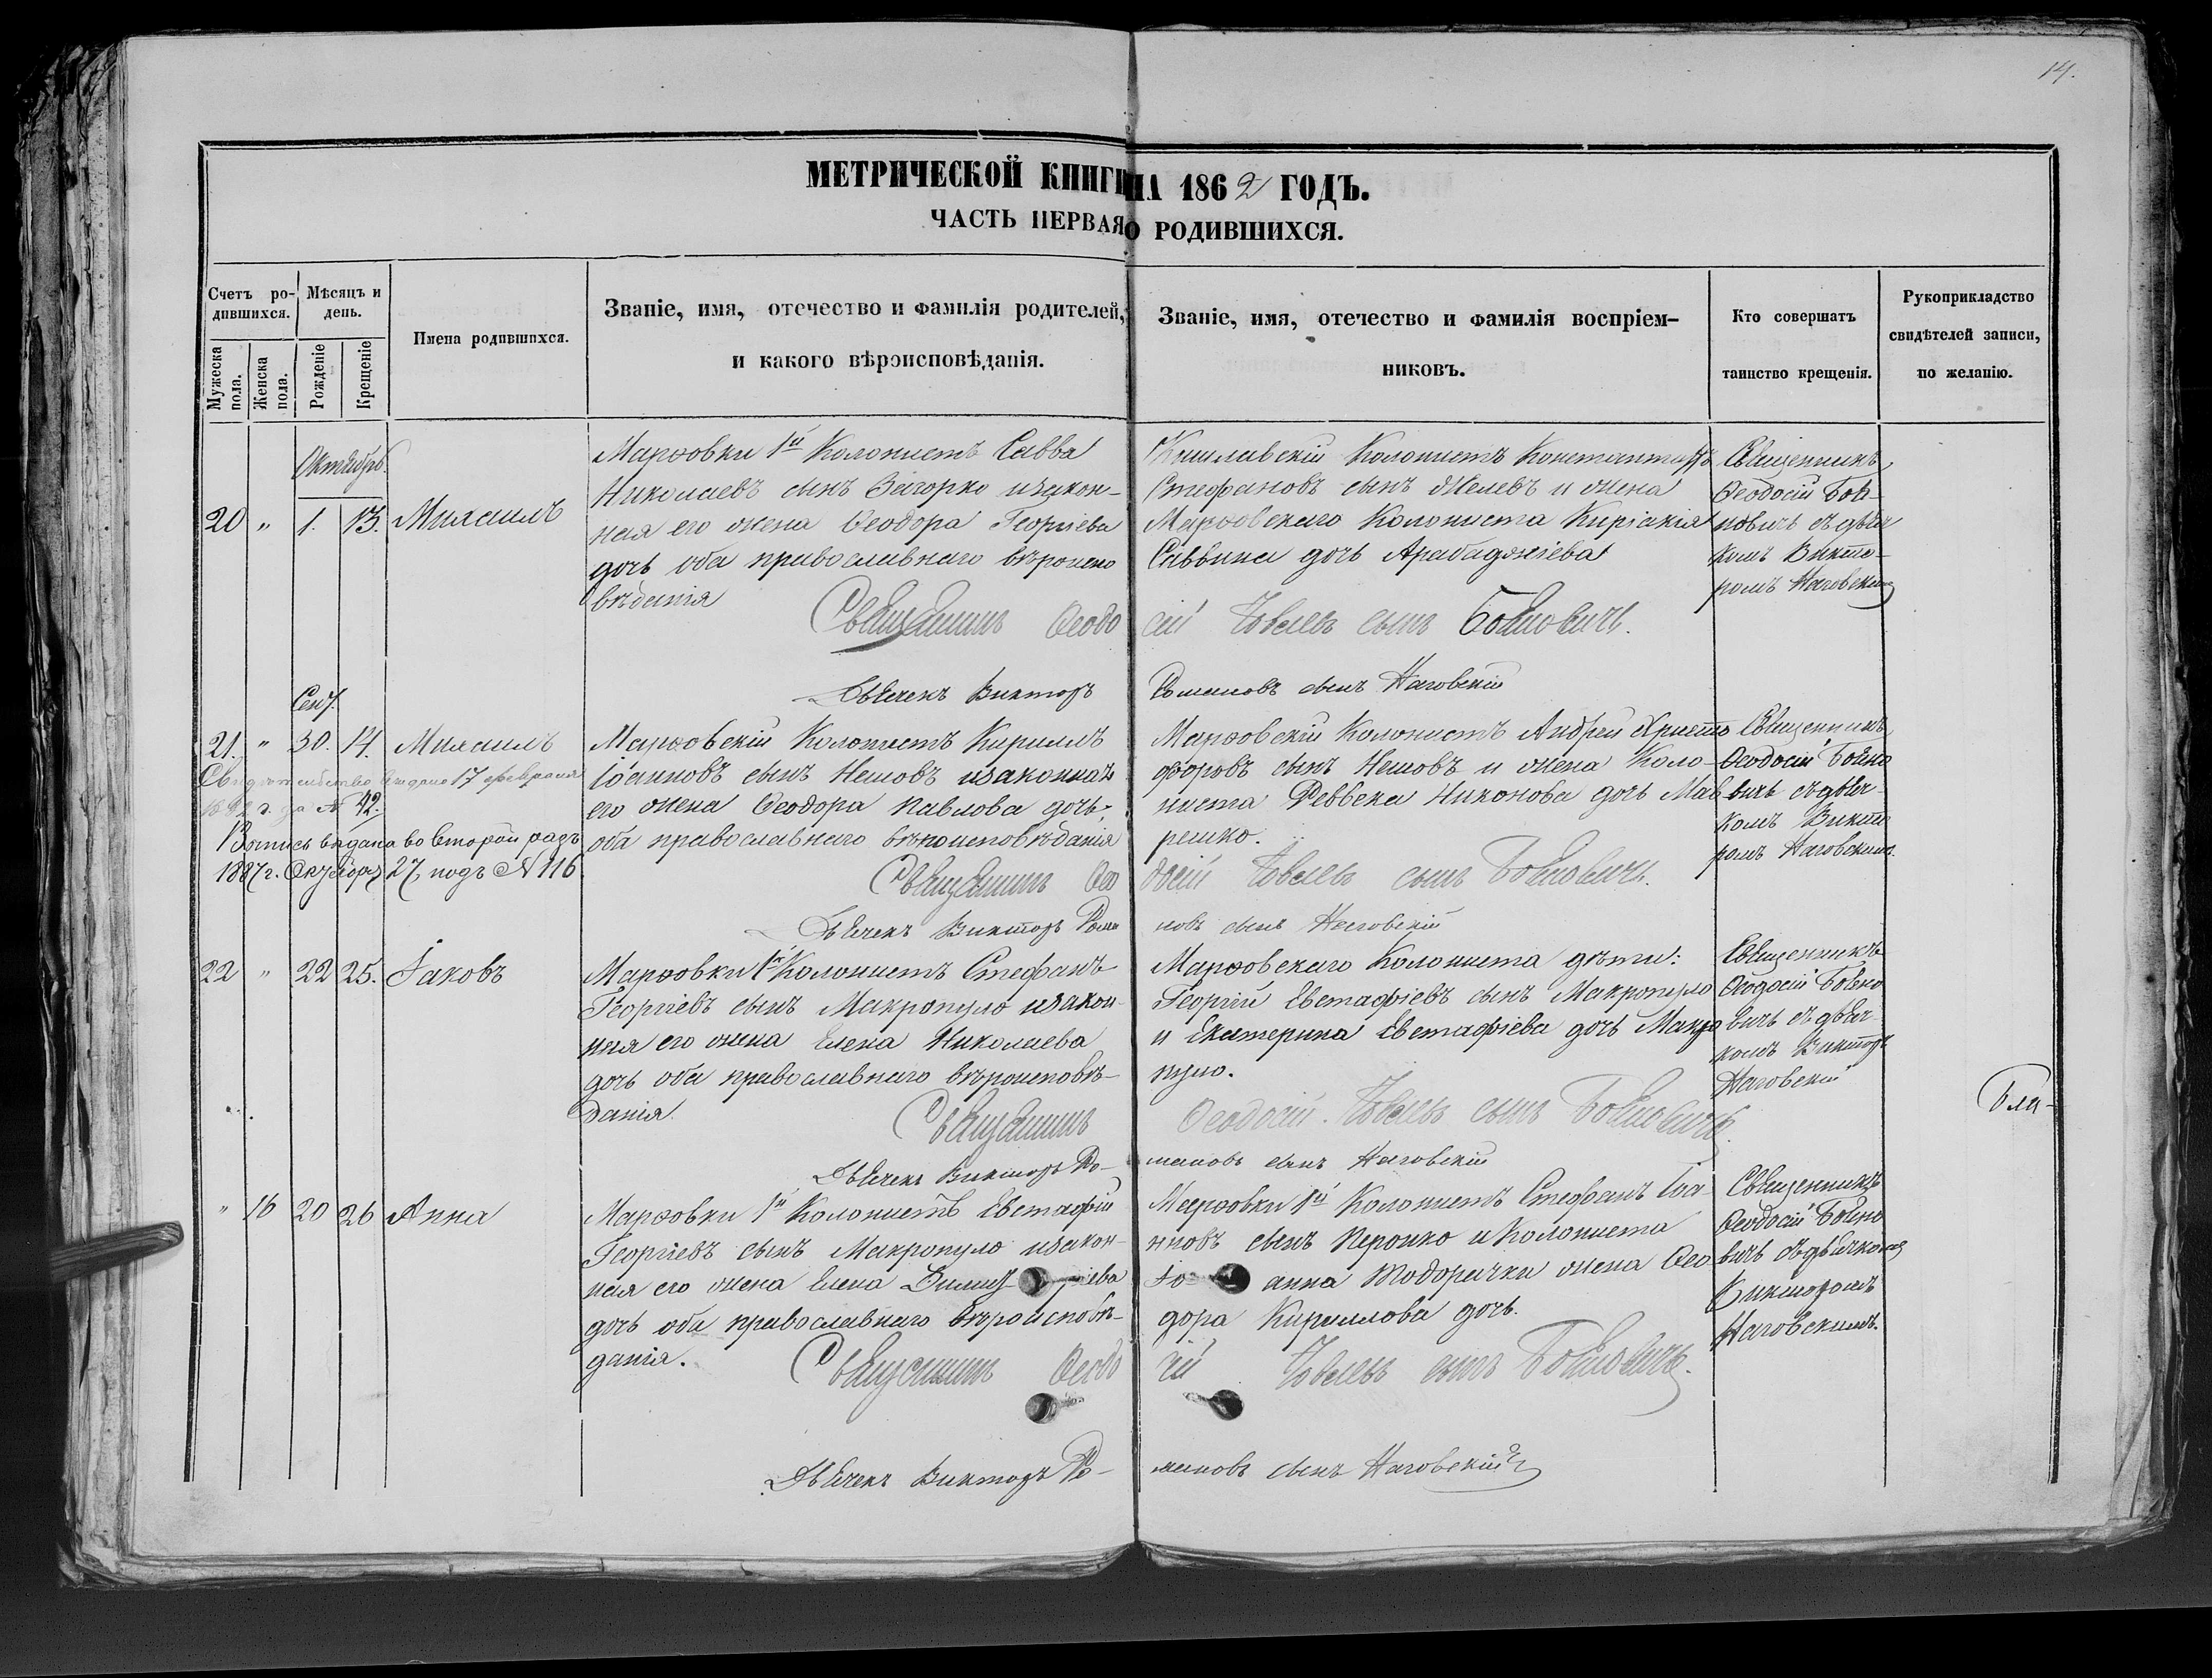 14.
МЕТРИЧЕСКОЙ КНИГИ НА 1862 ГОДЪ.
ЧАСТЬ ПЕРВАЯ О РОДИВШИХСЯ.
Счетъ родившихся.
Мужеска пола.
Женска пола.
Мѣсяцъ и день.
Рожденіе
Крещеніе
Имена родившихся.
Званіе, имя, отечество и фамилія родителей,
и какого вѣроисповѣданія.
Званіе, имя, отечество и фамилія воспріем-
никовъ.
Кто совершатъ
таинство крещенія.
Рукоприкладство
свидѣтелей записи,
по желанію.
Октябрь
20 " 1. 13. Михаилъ
Марѳовки 1й Колонистъ Савва
Николаевъ сынъ Загорко изакон-
ная его жена Ѳеодора Георгіева
дочь оба православнаго вѣроиспо
вѣданія
Кишлавскій Колонистъ Константинъ
Стефановъ сынъ Желевъ и жена
Марѳовскаго Колониста Киріакія
Саввина дочь Арабаджіева
Священникъ
Ѳеодосій Бой-
новичъ съ дьяч
комъ Викто-
ромъ Наговскимъ
Священникъ Ѳеодо сій сынъ Бойновичъ.
Дьячекъ Викторъ Романовъ сынъ Наговскій
Сен.
21. " 30. 14. Михаилъ
Свидѣтельство выдано 17 февраля
г. за № 42.
Выпись выдана во второй разъ
1887 г. Октября 27, подъ № 116
Марѳовскій Колонистъ Кириллъ
Іоанновъ сынъ Нешовъ изаконная
его жена Ѳеодора Павлова дочь;
оба православнаго вѣроисповѣданія
Марѳовскій Колонистъ Андрей Христо
форовъ сынъ Нешовъ и жена Коло-
ниста Реввека Никонова дочь Мав
решко.
Священникъ
Ѳеодосій Бойно
вичъ съ дьяч-
комъ Викто
ромъ Наговскимъ.
Священникъ Ѳео досій сынъ Бойновичъ.
Дьячекъ Викторъ Рома новъ сынъ Наговскій
22 " 22 25. Іаковъ
Марѳовки 1й Колонистъ Стефанъ
Георгіевъ сынъ Макропуло изакон-
ная его жена Елена Николаева
дочь оба православнаго вѣроисповѣ-
данія.
Марѳовскаго Колониста дѣти:
Георгій Евстафіевъ сынъ Макропуло
и Екатерина Евстафіева дочь Макро
пуло.
Священникъ
Ѳеодосій Бойно
вичъ съ дьяч-
комъ Викторъ
Наговскій
Бла-
Священникъ Ѳеодосій сынъ Бойновичъ.
Дьячекъ Викторъ Ро- мановъ сынъ Наговскій
" 16 20 26 Анна
Марѳовки 1й Колонистъ Евстафій
Георгіевъ сынъ Макропуло изакон-
ная его жена Елена
дочь оба православнаго вѣроисповѣ-
данія.
Марѳовки 1й Колонистъ Стефанъ Іоа-
нновъ сынъ Перонко и Колониста
Тодорачки жена Ѳео
дора Кириллова дочь.
Священникъ
Ѳеодосій Бойно
вичъ съ дьячкомъ
Викторомъ
Наговскимъ.
Священникъ Ѳеодо сій сынъ Бойновичъ.
Дьячекъ Викторъ Ро- мановъ сынъ Наговскій